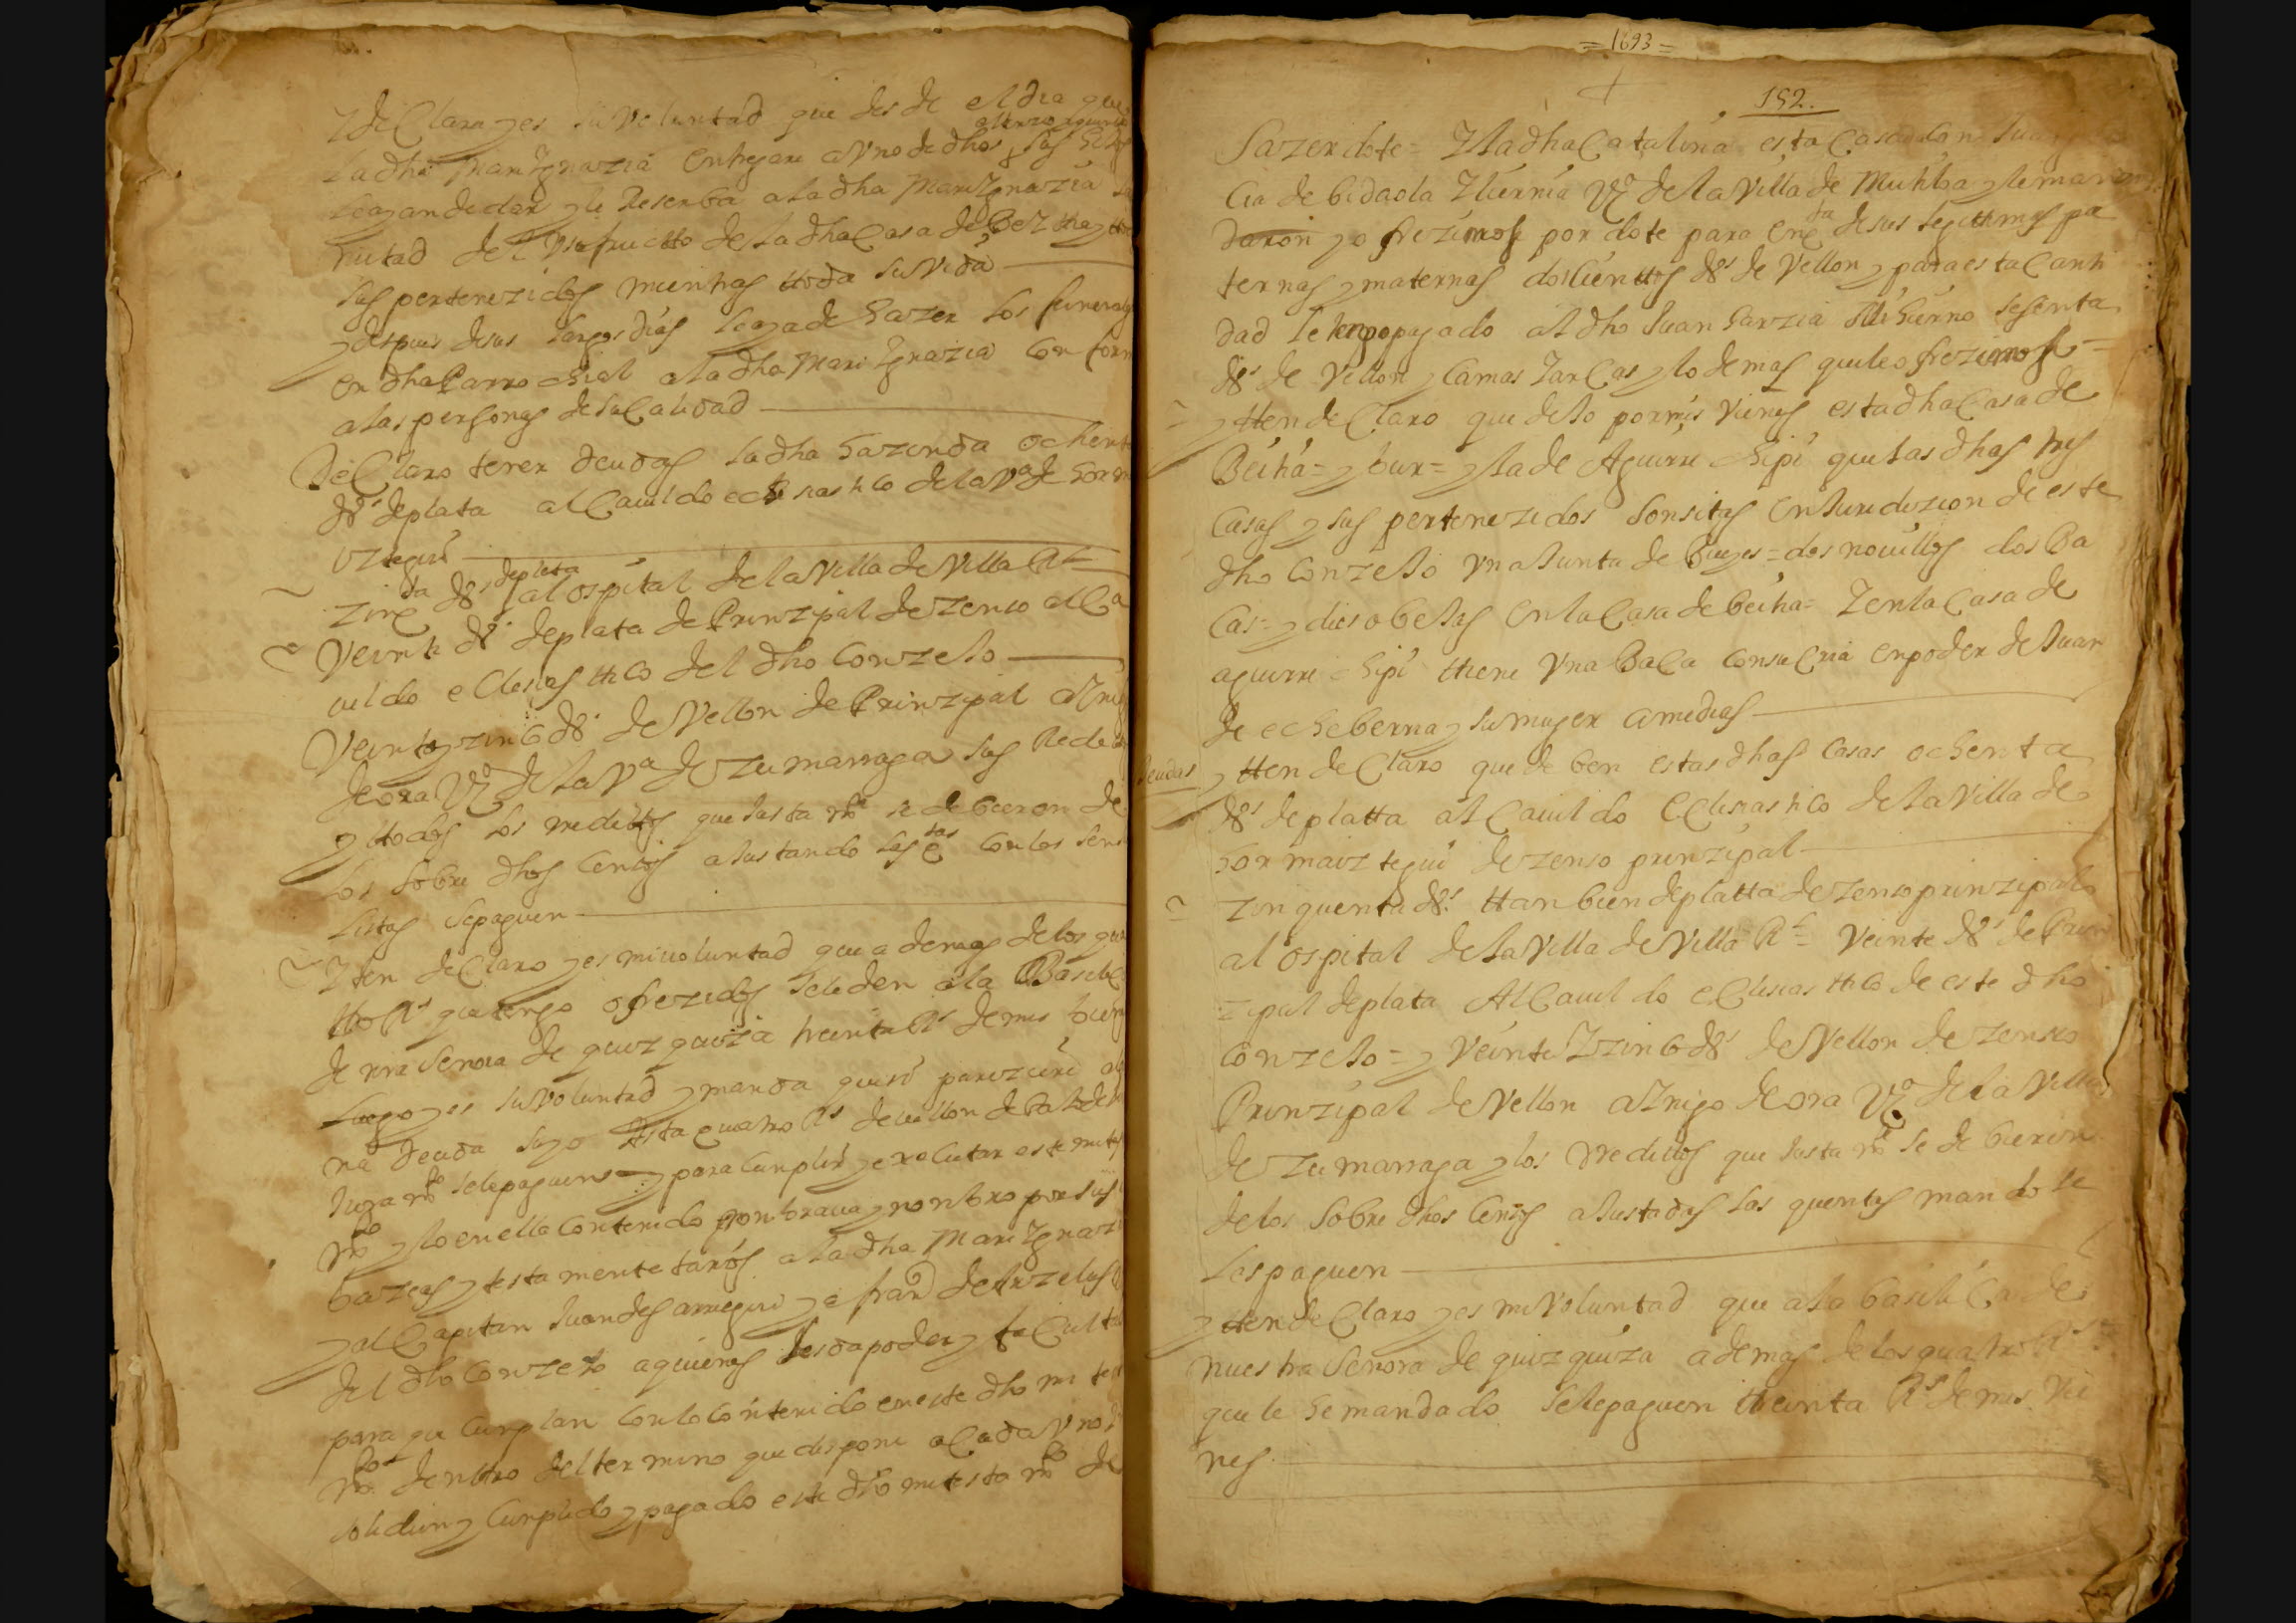 Y de Clara y es su Voluntad que desde el dia que
la dha Mari Ygnazia entregare a Vno de dhos sus hijos
le ayan de dar y le Reserba a la dha Mari Ygnazia la
mitad del Vsufructto de la dha Casa de
sus pertenezidos mientras ttoda su Vida
y despues de sus largos dias se aya de hazer los funerales
en dha Parrochial a la dha Mari Ygnazia Conform
a las personas de su Calidad
De Claro tener deudas la dha hazienda ochenta
ds de plata al Cauildo eclesiastico de la Va de Horm
aztegui
Zinqta ds de plata al ospital de la Villa de Villa Rl
Veinte ds de plata de Prinzipal de Zenso al Ca
uildo eClesiasttico del dho Conzejo
Veinte y zinco ds de Vellon de Prinzipal a Yñigo
de ora Vo de la Va de Zumarraga sus Redi
y ttodos los redittos que hasta se debieren de
los sobre dhos Censos ajustando las con los
listas se paguen
Yten de Claro y es mi voluntad que a demas de los qua
ttro Rs que tengo ofrezidos se le den a la Basilica
de nra Senora de quizquiza treinta Rs de mis bienes
Luego y es su Voluntad y manda que si parezciere
na deuda suyo Asta quatro Rs de vellon deba
se le paguen = y para Cunplir y executar este
y lo en ella Contenido nonbraua y nonbro por sus
bazeas y testamentarios a la dha Mari Ygnazia
y al Capitan Juan de sarriegui y a franco de Arzelus
del dho Conzejo a quienes les da poder y faCulta
para que Cunplan Con lo Contenido en este dho mi
dentro del termino que dispone a Cada Vno
solidun y Cunplido y pagado este dho mi testa de
= 1693 =
192.
Sazerdote = Y la dha Catalina esta Casada Con Juan
cia de bidaola Ylurnia Vo de la Villa de Mutiloa y le
daron y ofrezimos por dote para en qta de sus legittimas pa
ternas y maternas doscienttos ds de Vellon y para esta Canti
dad le tengo pagado al dho Juan Garzia mi hierno sesenta
ds de Vellon y Camas Y arCas y lo demas que le ofrezimos =
y tten de Claro que dejo por mis Vienes esta dha Casa de
Beitia = y bur = y la de Aguirre chipi que las dhas tres
Casas y sus pertenezidos son sitas en Juridizion de este
dho Conzejo Vna Junta de Bueyes = dos novillos dos Ba
Cas = y dies obejas en la Casa de beitia = Y en la Casa de
aguirre chipi ttiene Vna BaCa Con su Cria en poder de Juan
de echeberria y su muger a medias
deudas
y tten de Claro que deben estas dhas Casas ochenta
ds de platta al Cauildo EClesiastico de la Villa de
hormaiztegui de zenso prinzipal
Zinquenta ds ttanbien de platta de zenso prinzipal
al ospital de la Villa de Villa Rl = Veinte ds de Prin
zipal de plata Al Cauildo eClesiasttico de este dho
Conzejo = y Veinte Y zinco ds de Vellon de Zenso
Prinzipal de Vellon a Yñigo de ora Vo de la Villa
de Zumarraga y los rredittos que hasta se debieren
de los sobre dhos Censos ajustadas las quentas mando se
les paguen
y tten de Claro y es mi Voluntad que a la basiliCa de
nuestra Senora de quizquiza a demas de los quatro Rs
que le he mandado se le paguen ttreinta Rs de mis Vie
nes